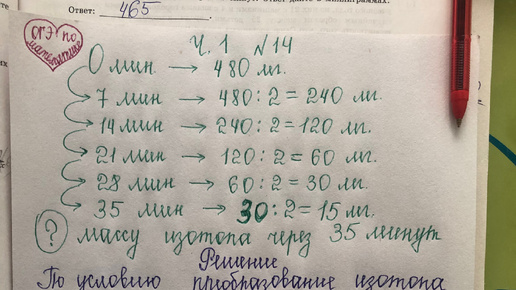 ответ дайте в миллиграммах.
Ответ: 465
ОГЭ по математике
Ч. 1 №14
0 мин → 480 мг.
7 мин → 480 : 2 = 240 мг.
14 мин → 240 : 2 = 120 мг.
21 мин → 120 : 2 = 60 мг.
28 мин → 60 : 2 = 30 мг.
35 мин → 30 : 2 = 15 мг.
? массу изотопа через 35 минут
Решение
По условию преобразование изотопа